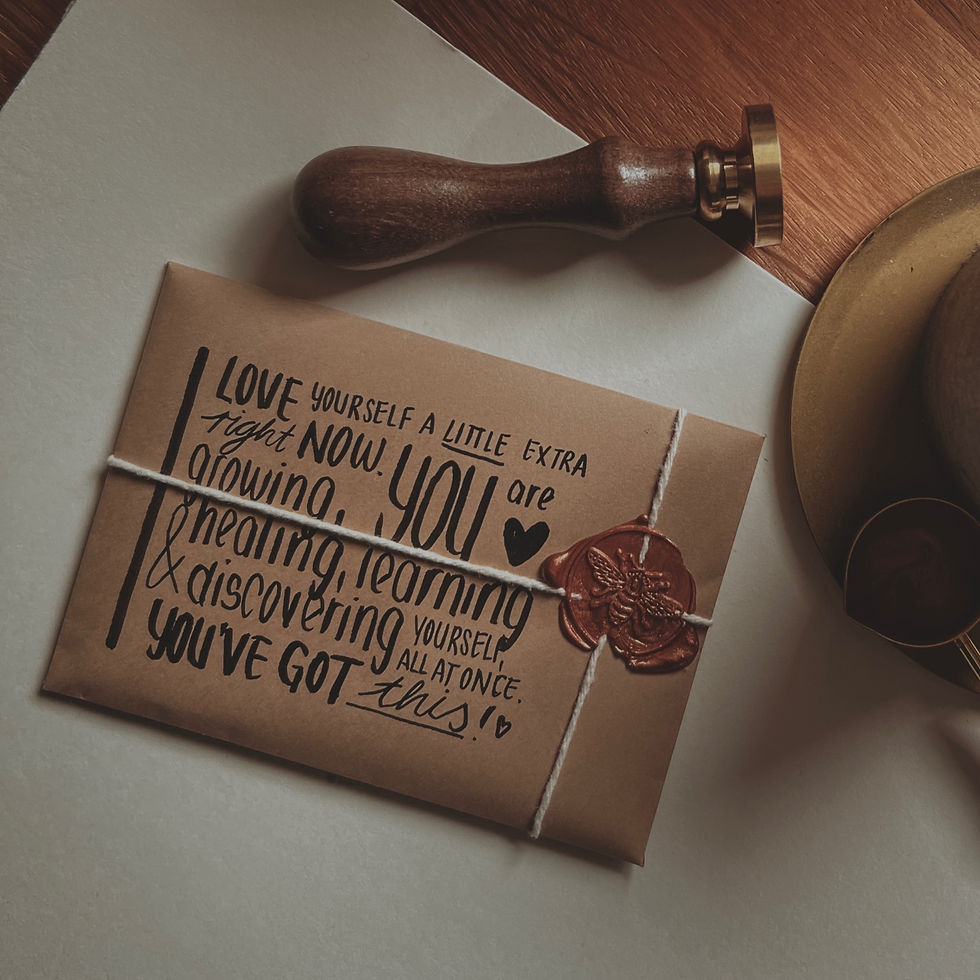 LOVE YOURSELF A LITTLE EXTRA
right NOW. YOU are
growing,
healing, learning
& discovering YOURSELF,
ALL AT ONCE.
YOU'VE GOT this!